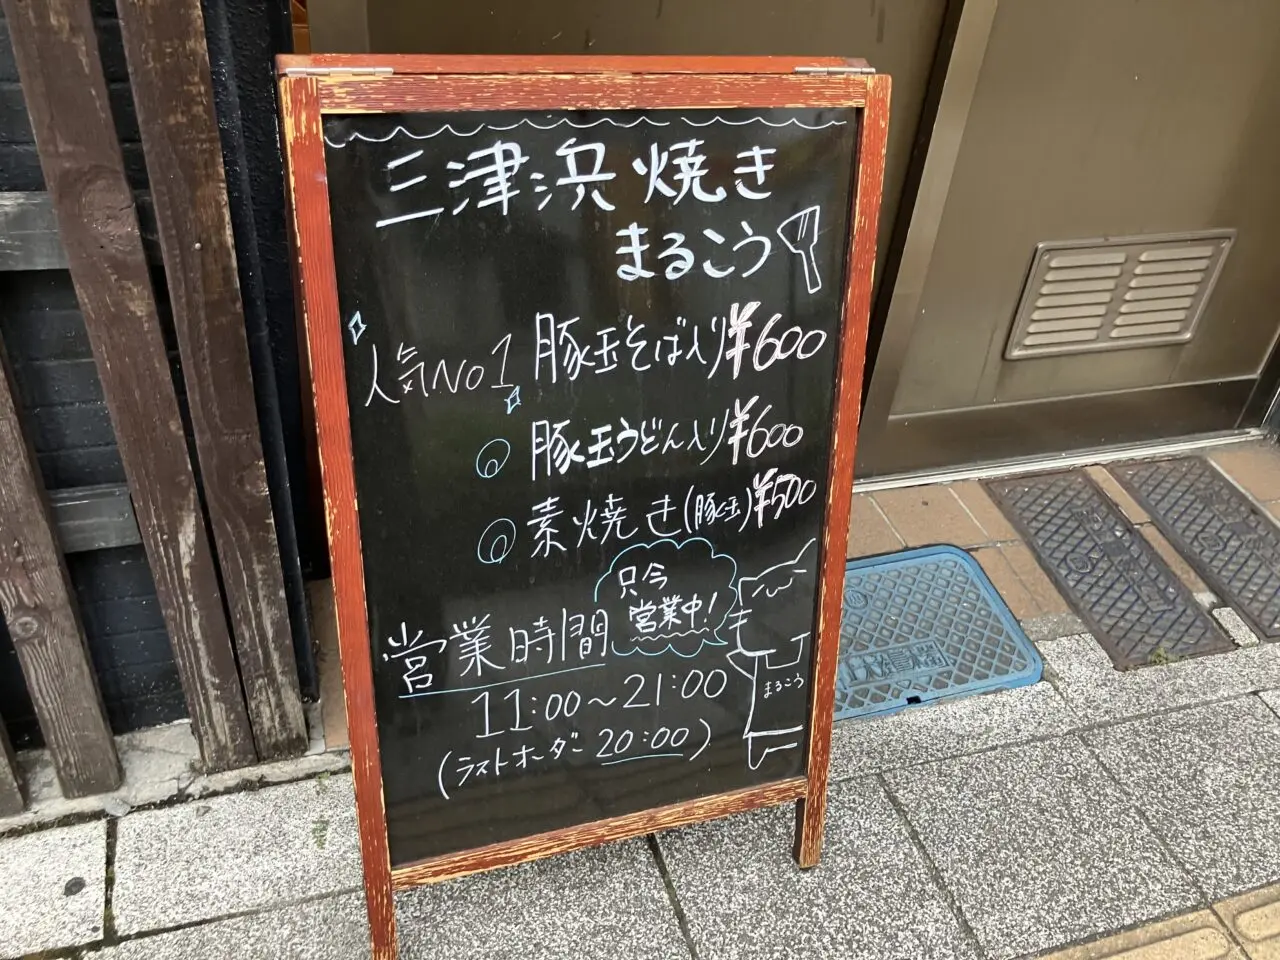 三津浜焼き
まるこう
人気No1 豚玉そば入り¥600
豚玉うどん入り¥600
素焼き(豚玉)¥500
只今
営業中!
営業時間
11:00~21:00
(ラストオーダー 20:00)
まるこう